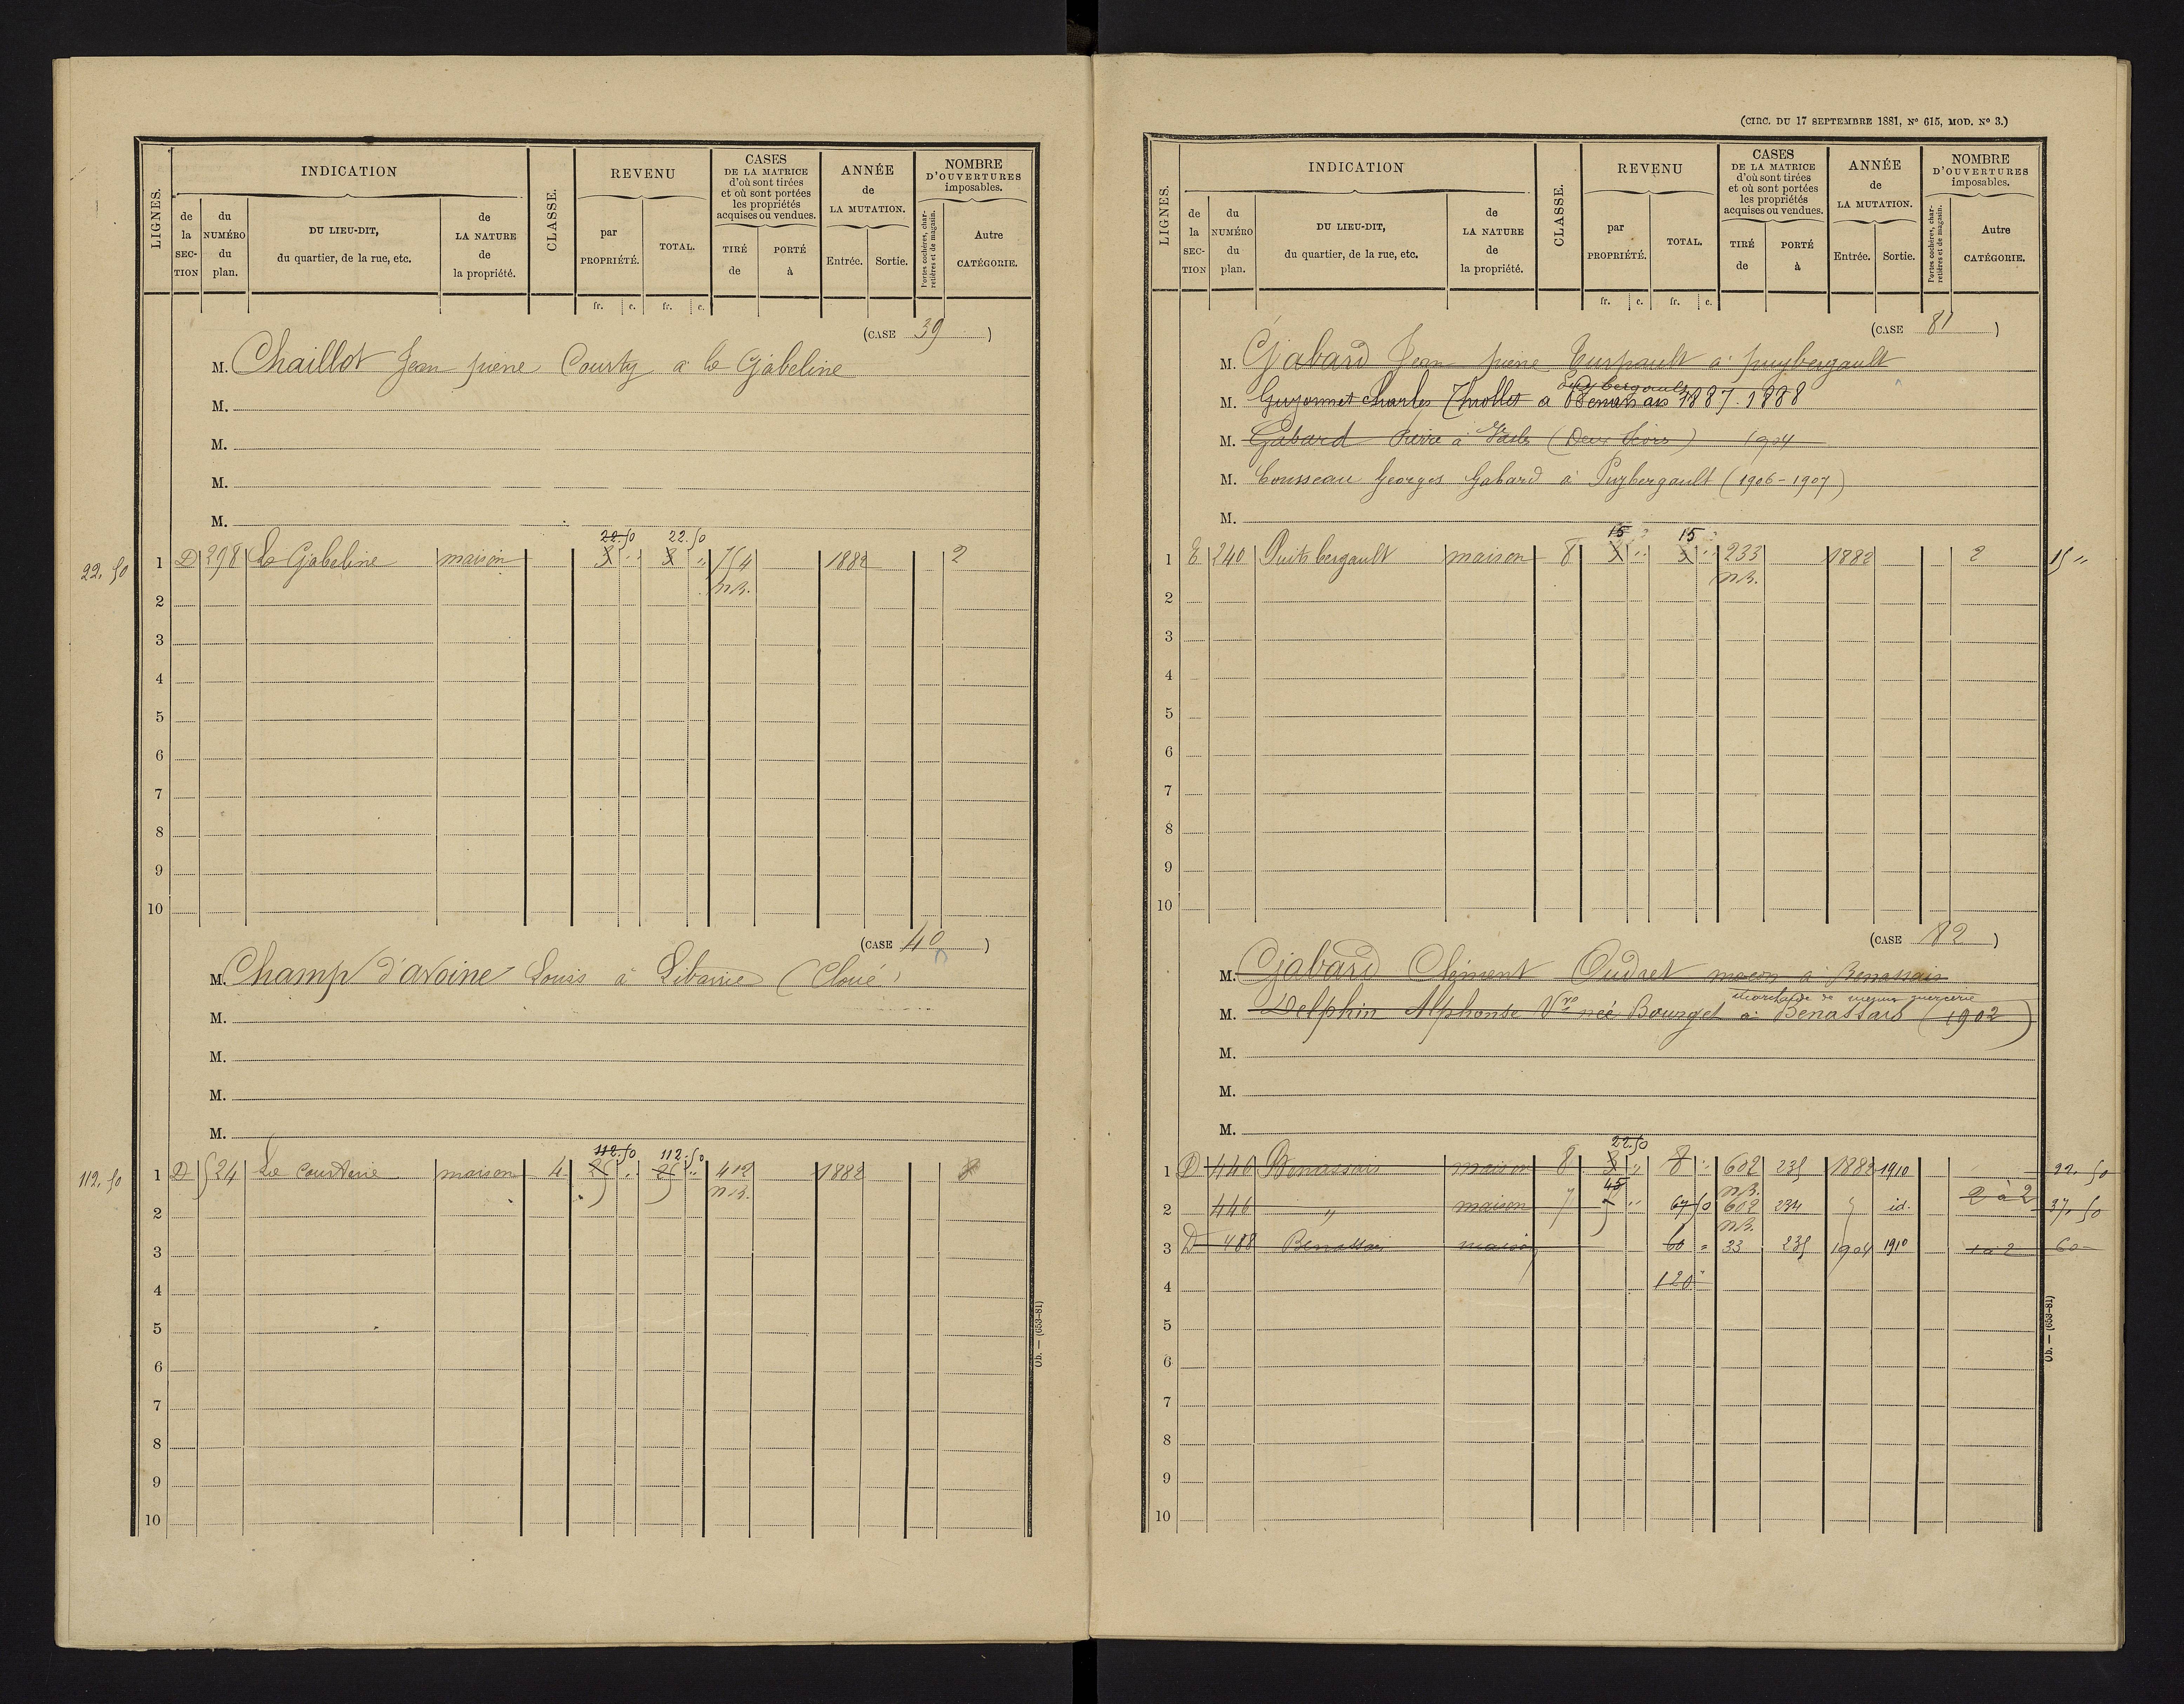 LIGNES.
INDICATION
de la SECTION
du NUMÉRO du plan.
DU LIEU-DIT, du quartier, de la rue, etc.
de LA NATURE de la propriété.
CLASSE.
REVENU
par PROPRIÉTÉ.
TOTAL.
CASES DE LA MATRICE d'où sont tirées et où sont portées les propriétés acquises ou vendues.
TIRÉ de
PORTÉ à
ANNÉE de LA MUTATION.
Entrée.
Sortie.
NOMBRE D'OUVERTURES imposables.
Portes cochères, charretières et de magasin.
Autre CATÉGORIE.
fr. c. fr. c.
(CASE 39 )
M. Chaillot Jean pierre Courty à la Gabeline
M.
M.
M.
M.
22.50 22.50
22,50 1 D 298 la Gabeline maison 3 " 3 " 754 1882 2
n.B.
2
3
4
5
6
7
8
9
10
(CASE 40 )
M. Champ d'avoine Louis à (Cloué)
M.
M.
M.
M.
112.50 112.50
112,50 1 D 524 La Courterie maison 4 25 " 25 " 412 1882
n.B.
2
3
4
5
6
7
8
9
10
Ob. — (653-81)
(CIRC. DU 17 SEPTEMBRE 1881, N° 615, MOD. N° 3.)
LIGNES.
INDICATION
de la SECTION
du NUMÉRO du plan.
DU LIEU-DIT, du quartier, de la rue, etc.
de LA NATURE de la propriété.
CLASSE.
REVENU
par PROPRIÉTÉ.
TOTAL.
CASES DE LA MATRICE d'où sont tirées et où sont portées les propriétés acquises ou vendues.
TIRÉ de
PORTÉ à
ANNÉE de LA MUTATION.
Entrée.
Sortie.
NOMBRE D'OUVERTURES imposables.
Portes cochères, charretières et de magasin.
Autre CATÉGORIE.
fr. c. fr. c.
(CASE 81 )
M. Gabard Jean pierre à puybergault
Puybergault
M. Guyonnet Charles à Benassais 1887.1888
M. Gabard Pierre à Vasles (Deux Sèvres) 1904
M. Cousseau Georges Gabard à Puybergault (1906-1907)
M.
15 15
1 E 240 Puitsbergault maison 8 3 " 3 " 233 1882 2 15 "
n.B.
2
3
4
5
6
7
8
9
10
(CASE 82 )
M. Gabard Clément Audret maçon à Benassais
marchande de
M. Delphin Alphonse Vve née Bourget à Benassais (1902)
M.
M.
M.
22.50
1 D 440 Benassais maison 8 3 " 8 " 602 235 1882 1910 22,50
45 n.B. 2 à 2
2 446 " maison 7 67 50 602 234 id. 37,50
n.B.
3 D 488 Benassais maison 60 " 33 235 1904 1910 1 à 2 60
4 120 "
5
6
7
8
9
10
Ob. — (653-81)